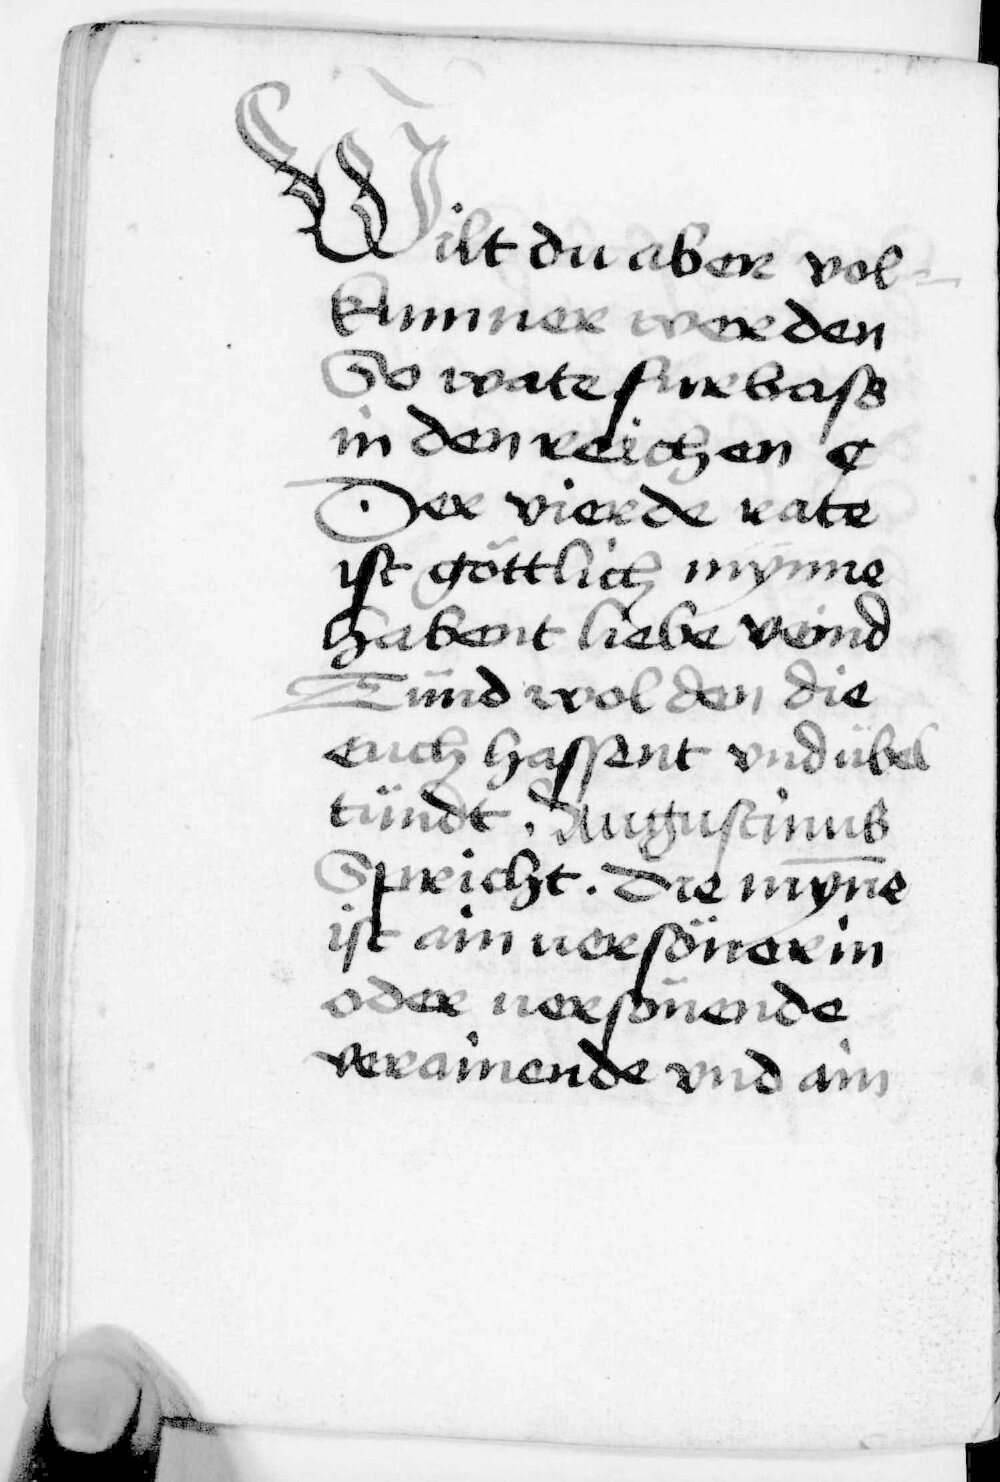 Wilt du aber vol-
kumner werden
So wate furbaſs
in den reichen ¢
Der vierde rate
iſt göttlich mynne
habent liebe veind
Tünd wol den die
euch haſſent vnd übel
tündt. Auguſtinus
Spricht. die mȳne
iſt ain uerſönerin
oder uerſönende
verainende vnd ain